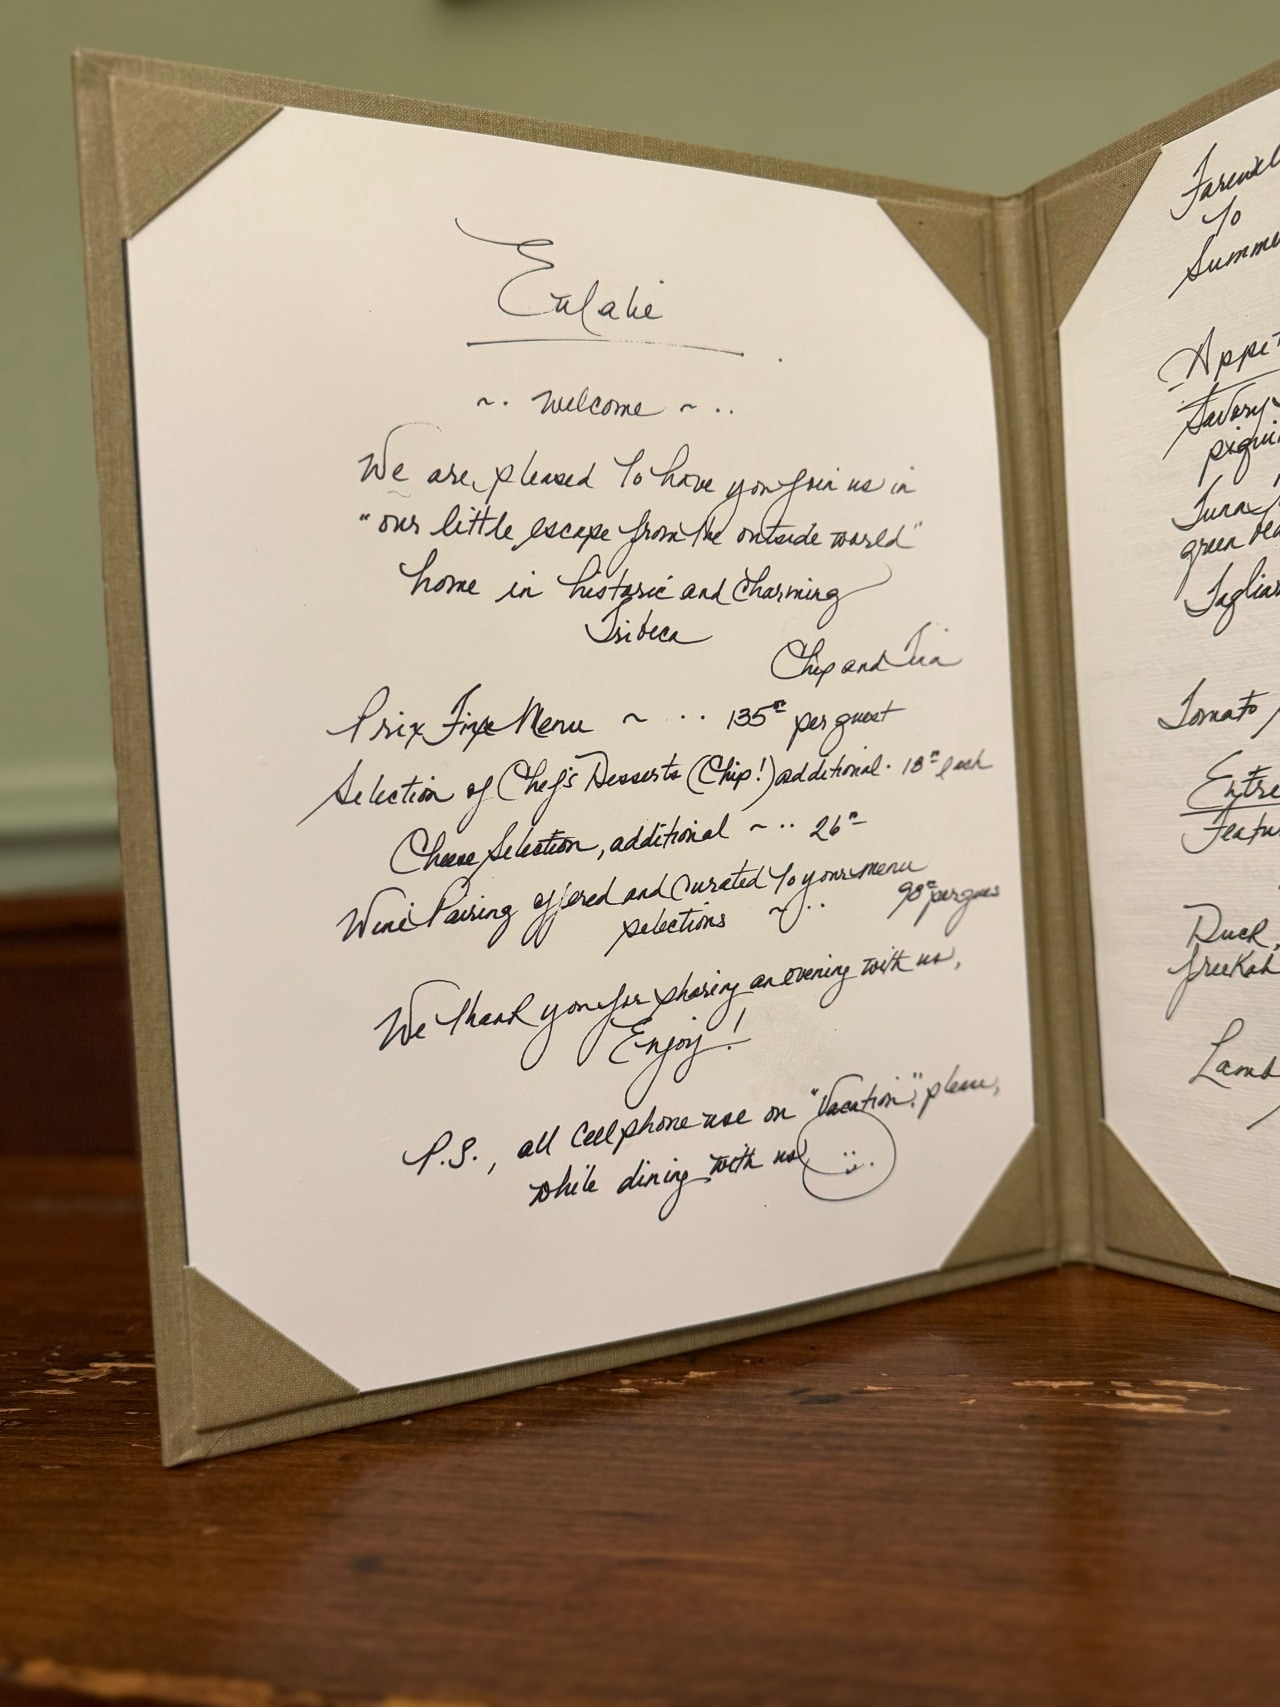 Eulalie
~ . Welcome ~ . .
We are pleased to have you join us in
"our little escape from the outside world"
home in historic and charming
Tribeca
Chip and Tina
Prix Fixe Menu ~ . . 135 per guest
Selection of Chef's Desserts (Chip!) additional . 18 each
Cheese Selection, additional ~ . . 26
Wine Pairing offered and curated to your menu
selections ~ . . 98 per gues
We thank you for sharing an evening with us,
Enjoy!
P.S., all cell phone use on "Vacation", please,
while dining with us
Farewel
To
Summe
Appet
Savory
piqui
Tuna
green bea
Taglia
Tomato
Entre
Featu
Duck,
freekah
Lamb